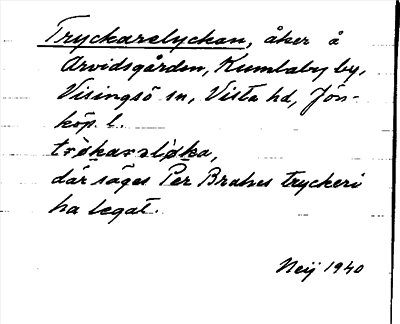 Tryckarelyckan, åker å
Arvidsgården, Kumlaby by,
Visingsö sn, Vista hd, Jön-
köp. l.
där säges Per Brahes tryckeri
ha legat.
Neij 1940